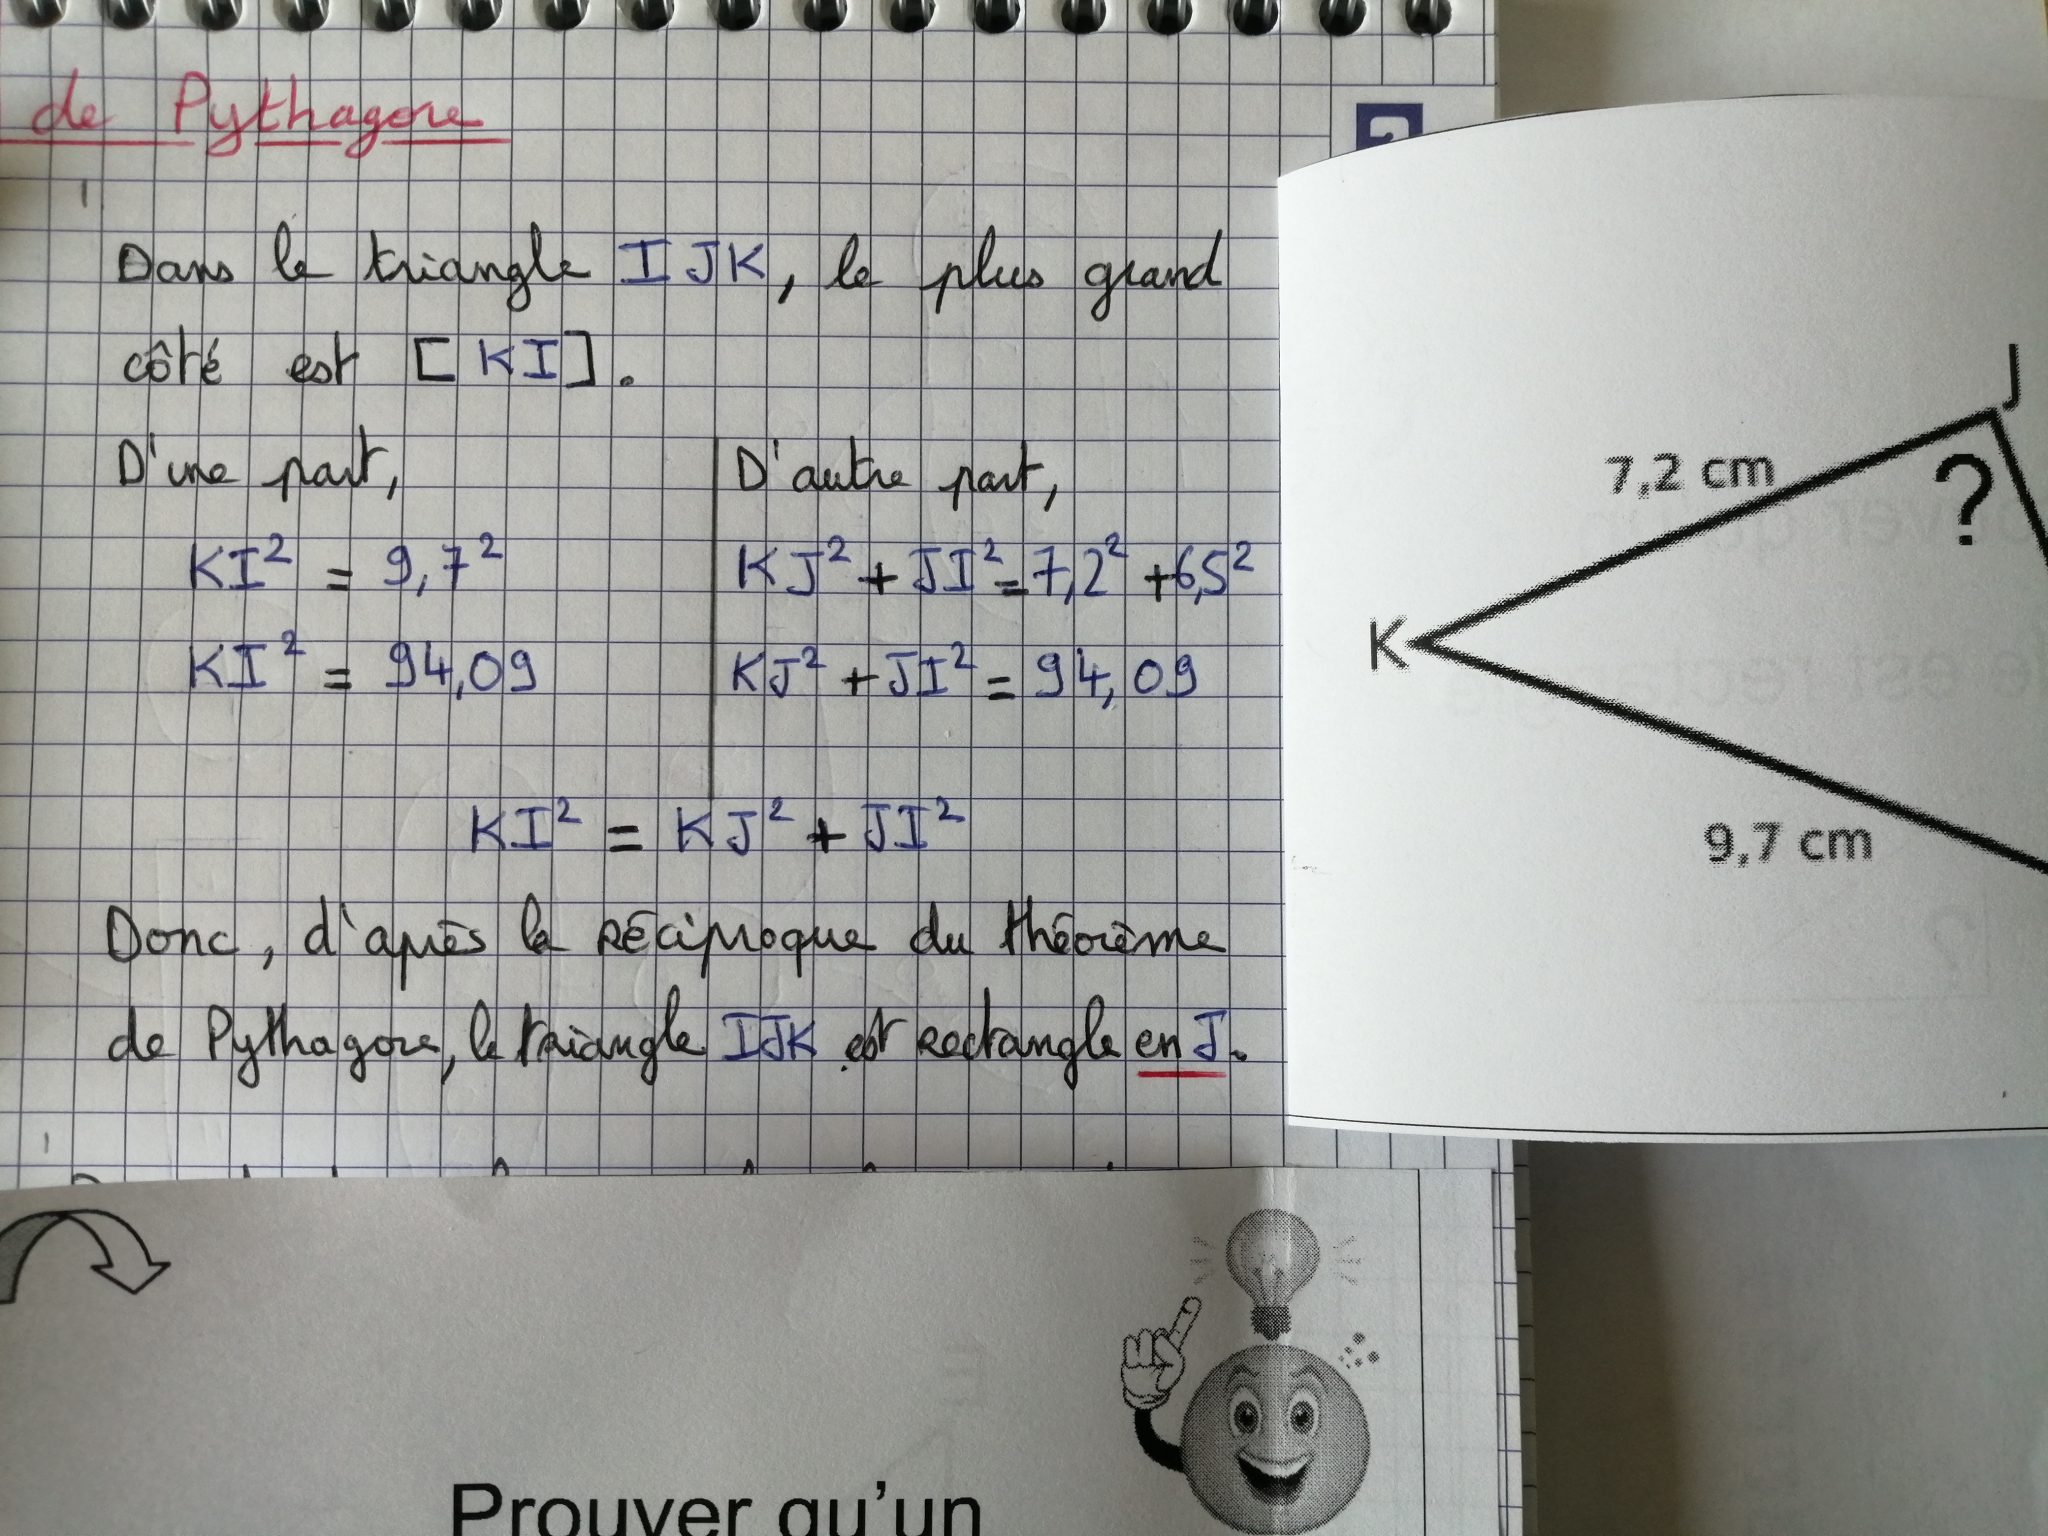 de Pythagore
Dans le triangle IJK, le plus grand
côté est [KI].
D'une part,
KI² = 9,7²
KI² = 94,09
D'autre part,
KJ² + JI² = 7,2² + 6,5²
KJ² + JI² = 94,09
KI² = KJ² + JI²
Donc, d'après la réciproque du théorème
de Pythagore, le triangle IJK est rectangle en J.
J
7,2 cm
?
K
9,7 cm
Prouver qu'un